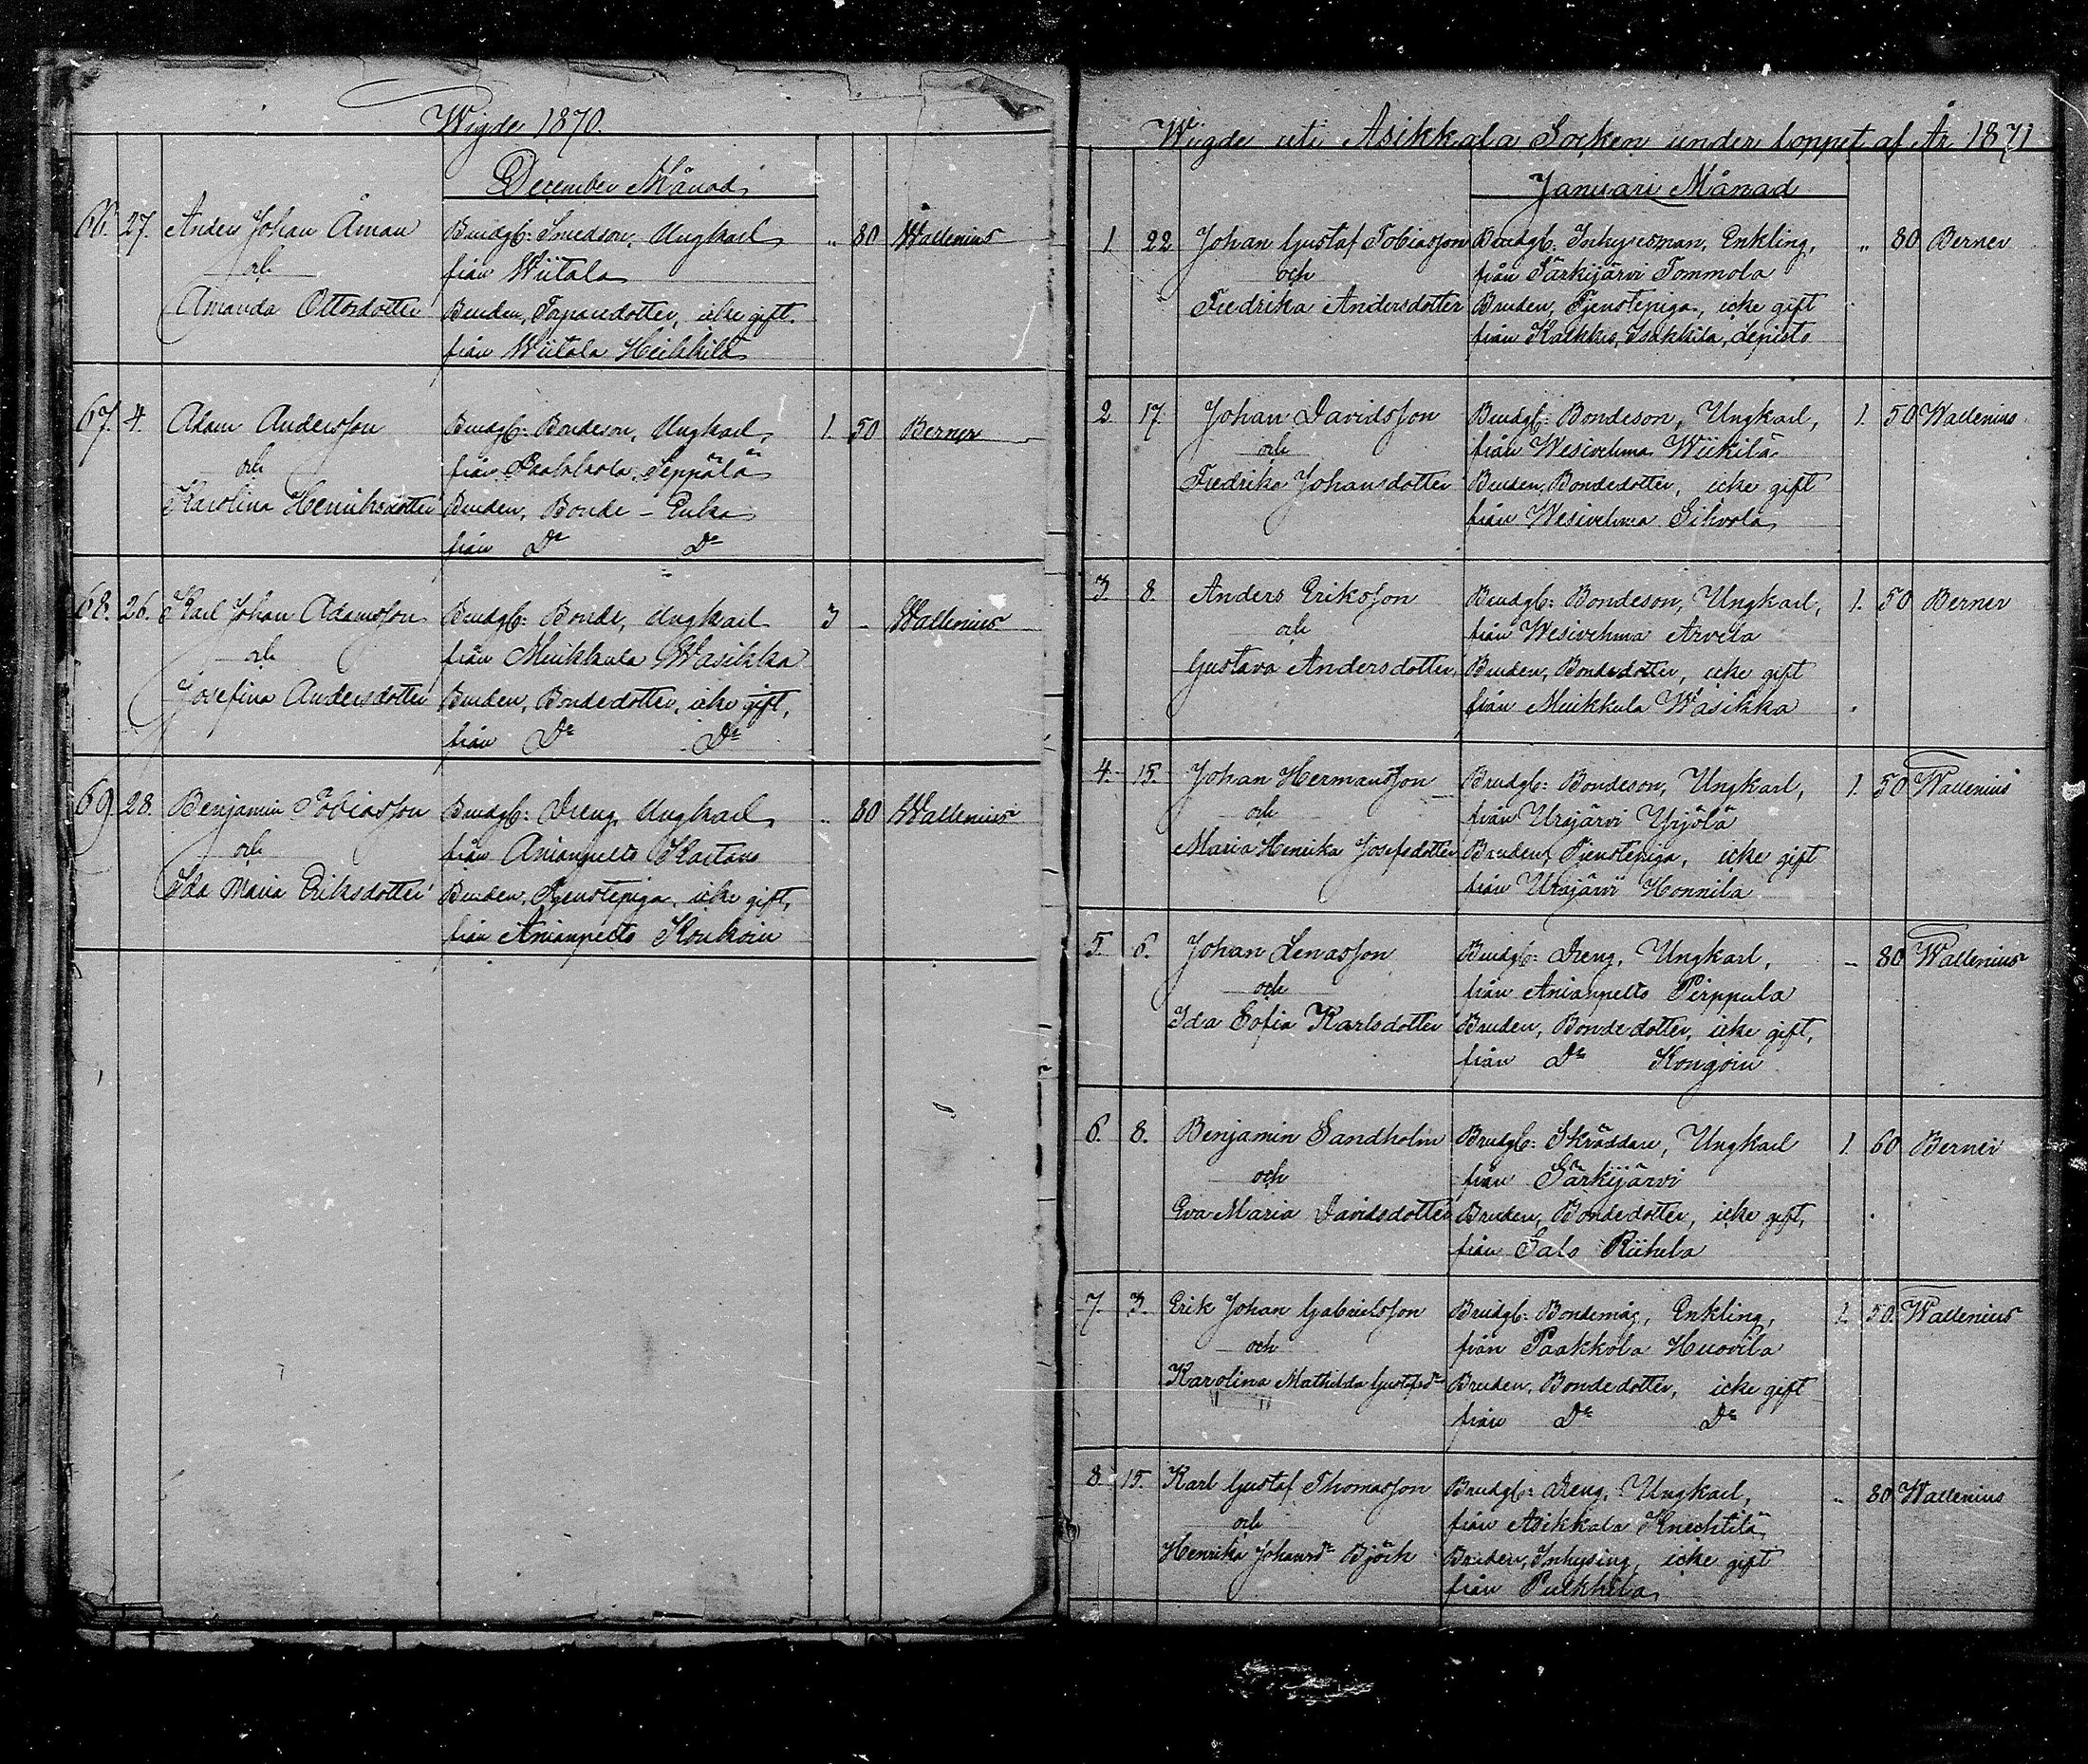 Wigde 1870.
December Månad
66. 27. Anders Johan Åman Brudg: Smedson, Ungkarl „ 80 Wallenius
och från Wiitala
Amanda Ottosdotter Bruden, icke gift.
från Wiitala Heikkilä
67. 4. Adam Andersson Brudg: Bondeson, Ungkarl, 1. 50 Berner
och från Paakkola Seppälä
Karolina Henriksdotter Bruden, Bonde - Enka
från Do Do
68. 26. Karl Johan Adamsson Brudg: Bonde, Ungkarl 3 - Wallenius
och från Muikkula Wasikka
Josefina Andersdotter Bruden, Bondedotter, icke gift,
från Do Do
69. 28. Benjamin Tobiasson Brudg: Dreng, Ungkarl, „ 80 Wallenius
och från Anianpelto
Ida Maria Eriksdotter Bruden, Tjenstepiga, icke gift,
från Anianpelto
Wigde uti Asikkala Socken under loppet af År 1871
Januari Månad
1 22 Johan Gustaf Tobiasson Brudg: Inhysesman, Enkling, „ 80 Berner
och från Särkijärvi Tommola
Fredrika Andersdotter Bruden, Tjenstepiga, icke gift
från Kalkkis, Isakkila,
2 17. Johan Davidsson Brudg: Bondeson, Ungkarl, 1. 50 Wallenius
och från Wesivehma Wiikilä
Fredrika Johansdotter Bruden, Bondedotter, icke gift
från Wesivehma Sihvola
3. 8. Anders Eriksson Brudg: Bondeson, Ungkarl, 1. 50 Berner
och från Wesivehma Arvela
Gustava Andersdotter, Bruden, Bondedotter, icke gift
från Muikkula Wasikka
4. 15. Johan Hermansson Brudg: Bondeson, Ungkarl, 1. 50 Wallenius
och från Urajärvi Yrjölä
Maria Henrika Josefsdotter Bruden, Tjenstepiga, icke gift
från Urajärvi Honnila
5. 6. Johan Lenasson Brudg: Dreng, Ungkarl, - 80 Wallenius
och från Anianpelto Pirppula
Ida Sofia Karlsdotter Bruden, Bondedotter, icke gift,
från Do Kongoin
6. 8. Benjamin Sandholm Brudg: Skräddare, Ungkarl 1. 60 Berner
och från Särkijärvi
Eva Maria Davidsdotter Bruden, Bondedotter, icke gift,
från Salo Riihela
7. 3. Erik Johan Gabrielsson Brudg: Bondemåg, Enkling, 1. 50. Wallenius
och från Paakkola Huovila
Karolina Mathilda Gustafsdr Bruden, Bondedotter, icke gift
från Do Do
8. 15. Karl Gustaf Thomasson Brudg: Dreng, Ungkarl, „ 80 Wallenius
och från Asikkala Knechtilä
Henrika Johansdr Björk Bruden, Inhysing, icke gift
från Pulkkila